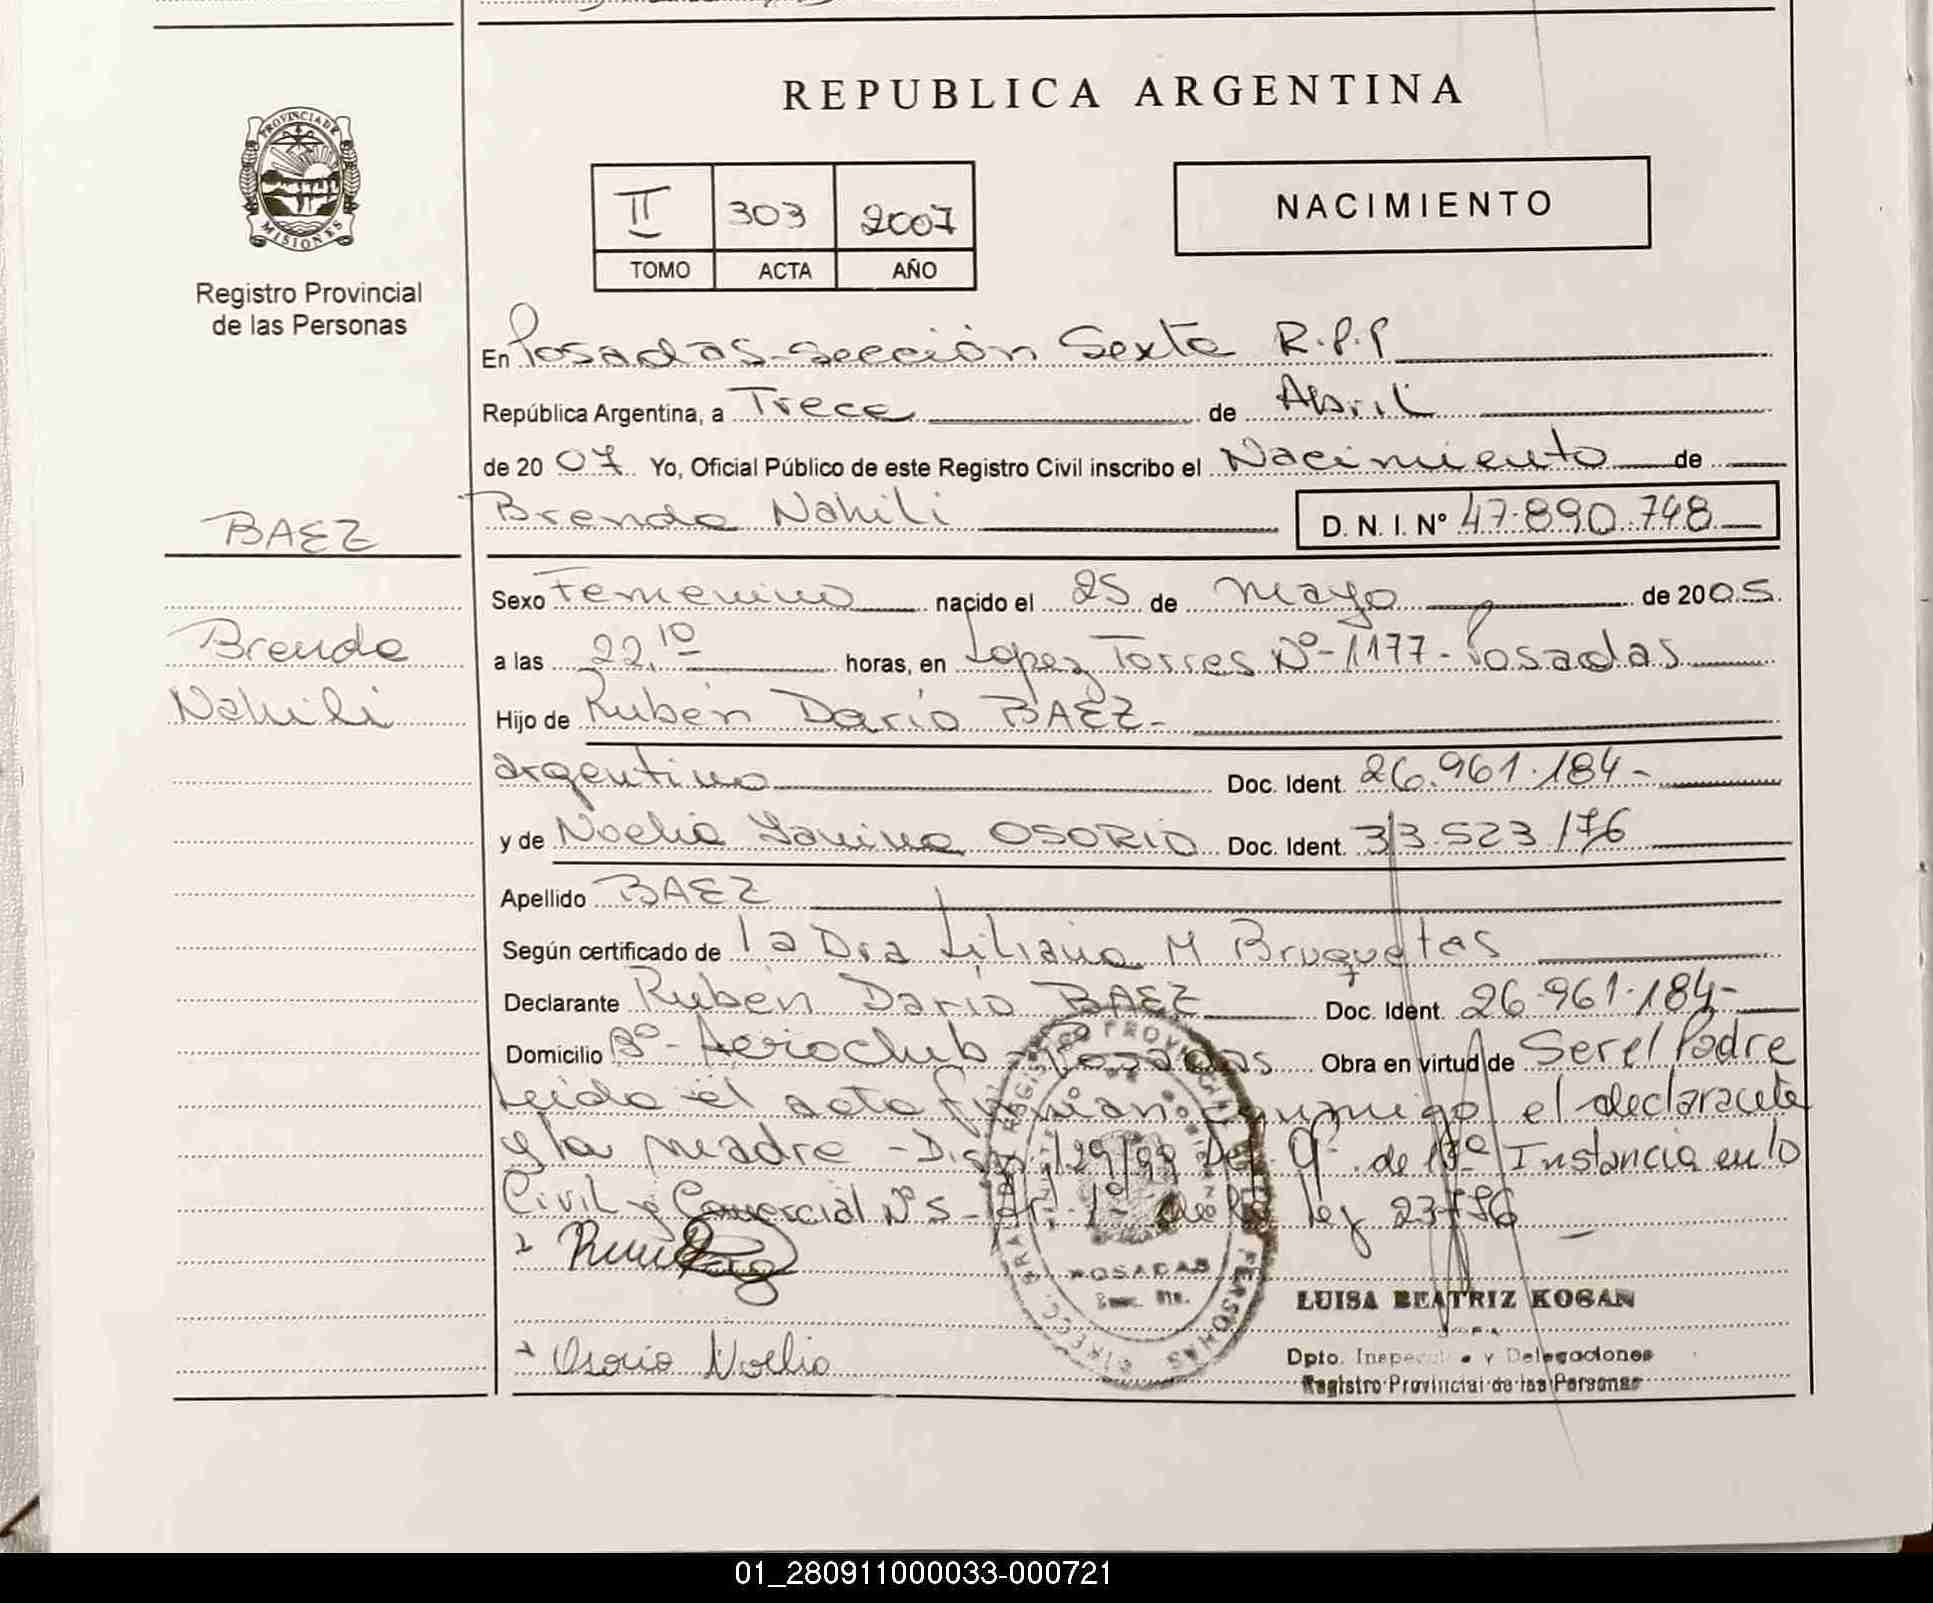 REPUBLICA ARGENTINA
PROVINCIA DE MISIONES
Registro Provincial
de las Personas
II 303 2007
TOMO ACTA AÑO
NACIMIENTO
En Posadas-sección Sexta R.P.P
República Argentina, a Trece de Abril
de 2007 Yo, Oficial Público de este Registro Civil inscribo el Nacimiento de
Brenda Nahili D. N. I. N° 47.890.748
BAEZ
Brenda
Nahili
Sexo Femenino nacido el 25 de mayo de 2005
a las 22,10 horas, en Lopez Torres Nº-1177-Posadas
Hijo de Rubén Darío BAEZ-
argentino Doc. Ident. 26.961.184-
y de Noelia Yanina OSORIO Doc. Ident. 33.523.176
Apellido BAEZ
Según certificado de la Dra Liliana M Bruquetas
Declarante Rubén Darío BAEZ Doc. Ident. 26.961.184-
Domicilio Bº-Aeroclub-Posadas Obra en virtud de Ser el Padre
Leida el acta firman conmigo el declarante
y la madre - Disp. 129/99 Def. de 1ra Instancia en lo
Civil y Comercial Nº5 - Art. 1º de la ley 23776
Osorio Noelia
POSADAS
LUISA BEATRIZ KOGAN
Dpto. Inspección y Delegaciones
Registro Provincial de las Personas
01_280911000033-000721